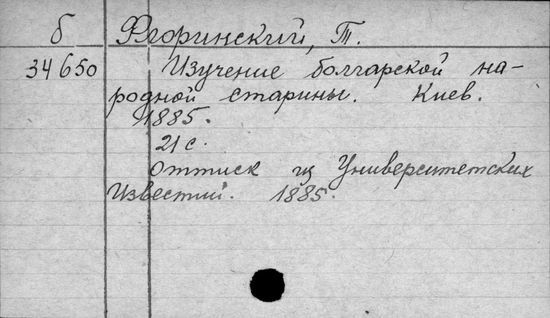 б Флоринский, Т.
34650 Изучение болгарской на-
родной старины. Киев.
1885.
21 с.
Оттиск из Университетских
Известий. 1885.